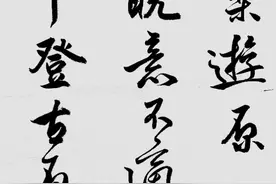 樂遊原
晚意不適
登古原